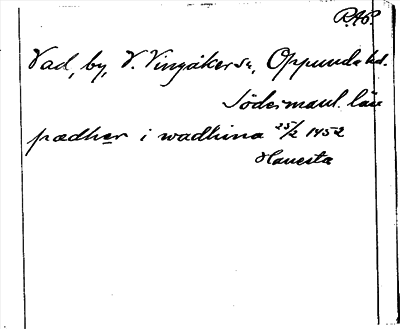 Vad, by, V. Vingåkers sn, Oppunda hd.
Södermanl. län
pædher i wadhina 25/2 1452
Hanesta